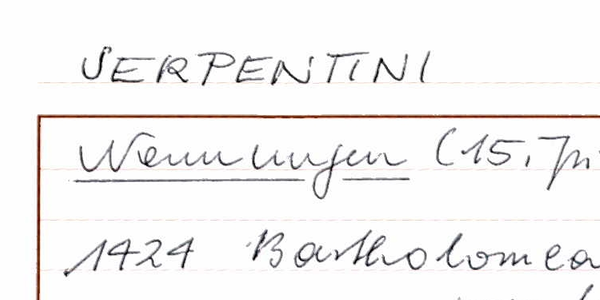 SERPENTINI
Nennungen (15. Ju
1424 Bartholomea